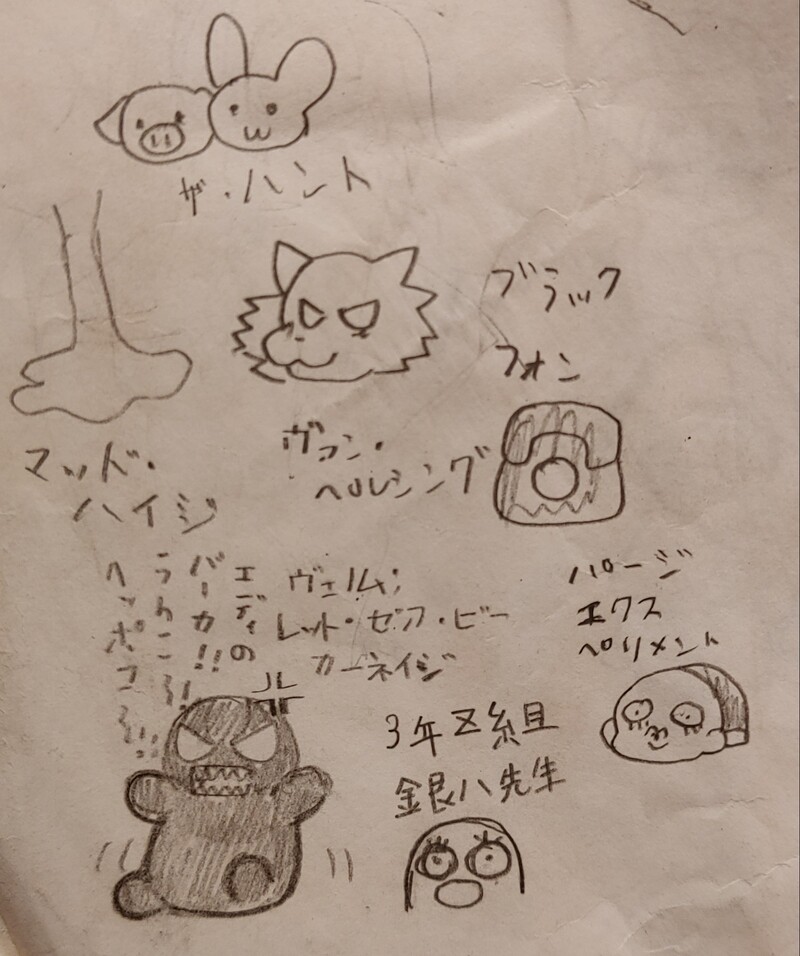 ザ・ハント
ブラック
フォン
ヴァン・
ヘルシング
マッド・
ハイジ
エディの
バーカ!!
うんこ〜!!
ヘッポコ〜!!
ヴェノム:
レット・ゼア・ビー
カーネイジ
パージ
エクス
ペリメント
3年Z組
銀八先生